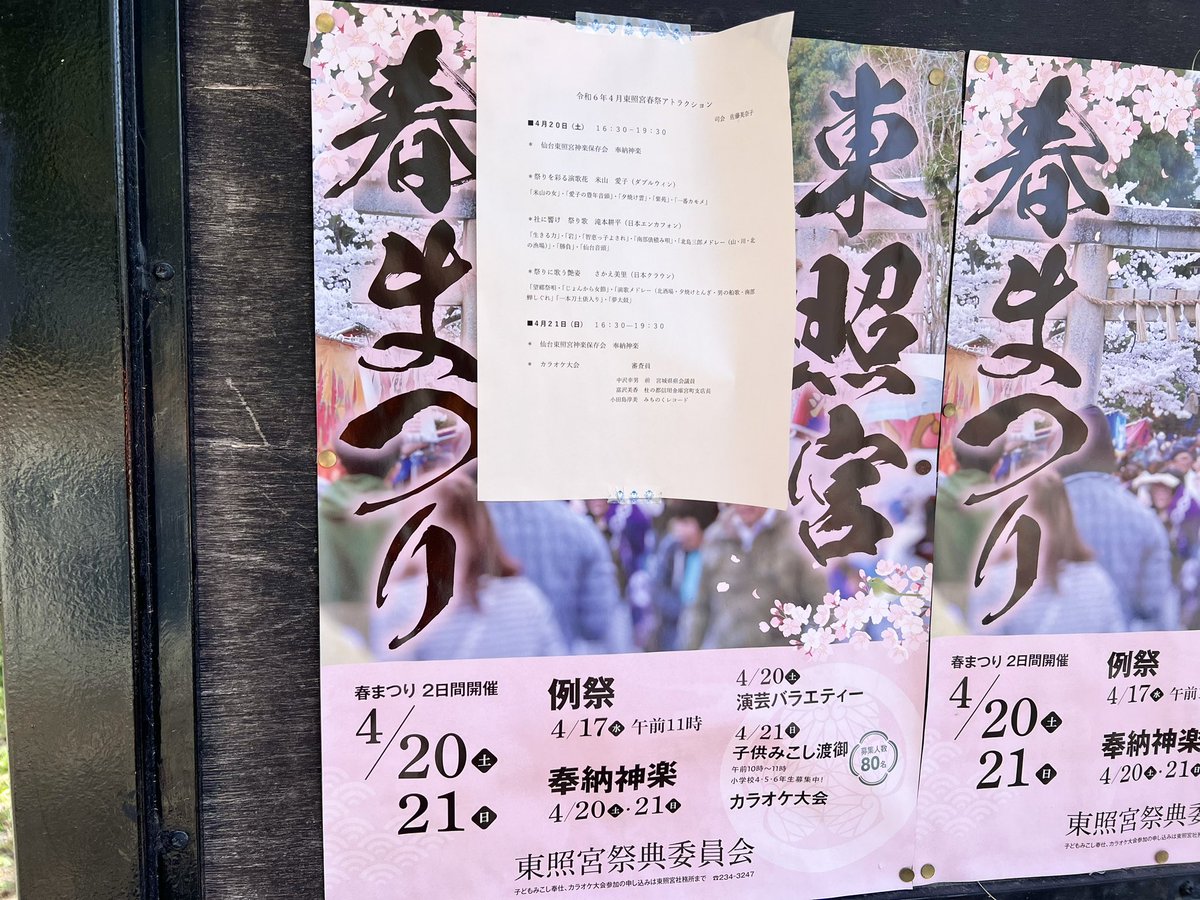 春まつり
東照宮
令和6年4月東照宮春祭アトラクション
司会 佐藤美奈子
■4月20日(土) 16:30-19:30
* 仙台東照宮神楽保存会 奉納神楽
*祭りを彩る演歌花 米山 愛子(ダブルウィン)
「米山の女」・「愛子の豊年音頭」・「夕焼け雲」・「蘭苑」・「一番カモメ」
*社に響け 祭り歌 滝本耕平(日本エンカフォン)
「生きる力」・「岩」・「智恵っ子よされ」・「南部俵積み唄」・「北島三郎メドレー(山・川・北
の漁場)」・「勝負」・「仙台音頭」
*祭りに歌う艶姿 さかえ美里(日本クラウン)
「望郷祭唄・「じょんから女節」・「演歌メドレー(北酒場・夕焼けとんび・男の船歌・南部
蝉しぐれ」「一本刀土俵入り」・「夢太鼓」
■4月21日(日) 16:30―19:30
* 仙台東照宮神楽保存会 奉納神楽
* カラオケ大会 審査員
中沢幸男 前 宮城県県会議員
富沢美香 杜の都信用金庫宮町支店長
小田島淳美 みちのくレコード
春まつり 2日間開催
4/20土
21日
例祭
4/17水 午前11時
奉納神楽
4/20土・21日
4/20土
演芸バラエティー
4/21日
子供みこし渡御
午前10時〜11時
小学校4・5・6年生募集中!
募集人数
80名
カラオケ大会
東照宮祭典委員会
子どもみこし奉仕、カラオケ大会参加の申し込みは東照宮社務所まで ☎234-3247
春まつり
春まつり 2日間開催
4/20土
21日
例祭
4/17水 午前1
奉納神楽
4/20土・21日
東照宮祭典
子どもみこし奉仕、カラオケ大会参加の申し込みは東照宮社務